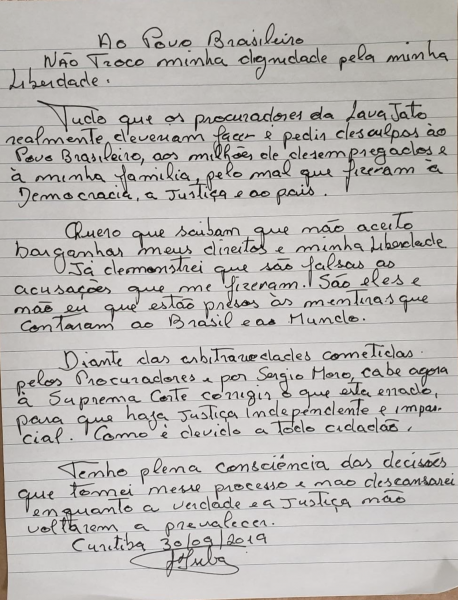 Ao Povo Brasileiro
Não Troco minha dignidade pela minha
Liberdade.
Tudo que os procuradores da Lava Jato
realmente deveriam fazer é pedir desculpas ao
Povo Brasileiro, aos milhões de desempregados e
à minha familia, pelo mal que fizeram à
Democracia, a Justiça e ao país.
Quero que saibam que não aceito
barganhar meus direitos e minha Liberdade
Já demonstrei que são falsas as
acusações que me fizeram. São eles e
não eu que estão presos às mentiras que
contaram ao Brasil e ao Mundo.
Diante das arbitrariedades cometidas
pelos Procuradores e por Sergio Moro, cabe agora
à Suprema Corte corrigir o que está errado,
para que haja Justiça independente e impar
cial. Como é devido a todo cidadão.
Tenho plena consciência das decisões
que tomei nesse processo e não descansarei
enquanto a verdade e a Justiça não
voltarem a prevalecer.
Curitiba 30/09/2019
Lula